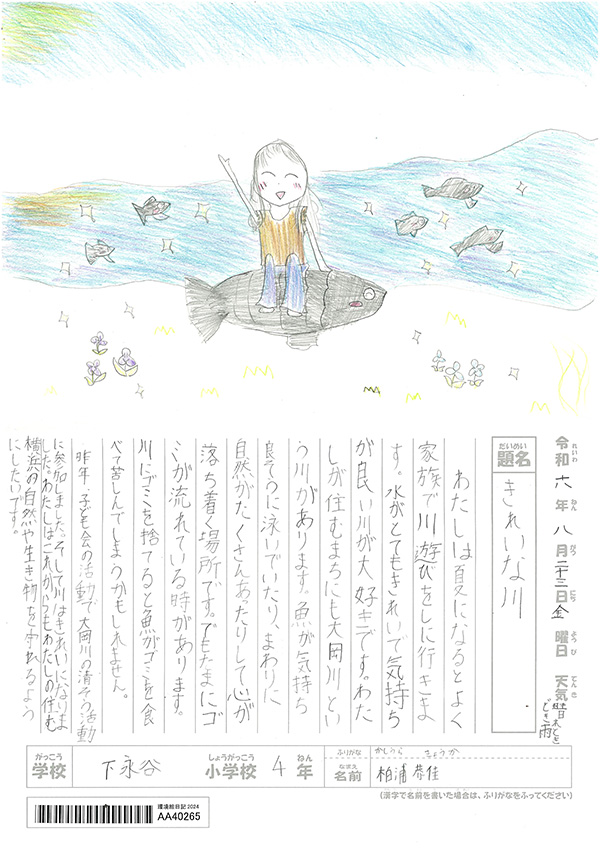 令和六年八月二十三日金曜日 天気 晴れときどき雨
れいわ ねん がつ にち ようび てんき
だいめい
題名 きれいな川
わたしは夏になるとよく
家族で川遊びをしに行きま
す。水がとてもきれいで気持ち
が良い川が大好きです。わた
しが住むまちにも大岡川とい
う川があります。魚が気持ち
良そうに泳いでいたり、まわりに
自然がたくさんあったりして心が
落ち着く場所です。でもたまにゴ
ミが流れている時があります。
川にゴミを捨てると魚がゴミを食
べて苦しんでしまうかもしれません。
昨年、子ども会の活動で大岡川の清そう活動
に参加しました。そして川はきれいになりま
した。わたしはこれからもわたしの住む
横浜の自然や生き物を守れるよう
にしたいです。
がっこう しょうがっこう ねん ふりがな かしうら きょうか
学校 下永谷 小学校 4年 なまえ 名前 柏浦恭佳
(漢字で名前を書いた場合は、ふりがなをふってください)
環境絵日記 2024
AA40265